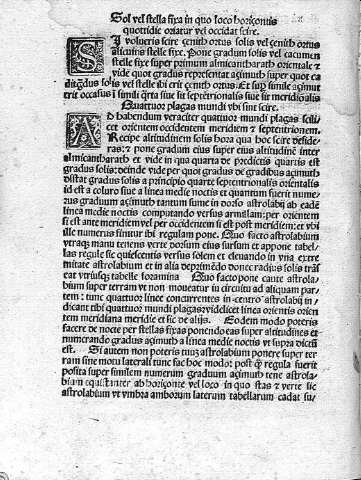 Sol vel stella fixa in quo loco horizontis
quottidie oriatur vel occidat scire.
SI volueris scire zenith ortus solis vel zenith ortus
alicuius stelle fixe. Pone gradum solis vel cacumen
stelle fixe super primum almicantharath orientale et
vide quot gradus representat azimuth super quot ca
solis vel stelle ibi erit zenith ortus. Et
erit occasus
Quattuor plagas mundi vbi sint scire.
AD habendum veraciter quatuor mundi plagas scili
cet orientem occidentem meridiem et septentrionem.
Recipe altitudinem solis hora qua hoc scire deside
ras: et pone gradum eius super eius altitudinē inter
almicantharath et vide in qua quarta de predictis quartis est
gradus solis: deinde vide per quot gradus de gradibus azimuth
distat gradus solis a principio quarte septentrionalis orientalis
id est a coluro siue a linea medie noctis et quantum fuerit nume
rus graduum azimuth tantum sume in dorso astrolabij ab eadē
linea medie noctis computando versus armillam: per orientem
si est ante meridiem vel per occidentem si est post meridiem: et vbi
ille numerus finitur ibi regulam pone. Quo facto astrolabium
vtraque manu tenens verte dorsum eius sursum et appone tabel
las regule sic quiescentis versus solem et eleuando in vna extre
mitate astrolabium et in alia deprimēdo donec radius solis trāf
eat vtriusque tabelle foramina Quo facto pone caute astrola
bium super terram vt non moueatur in circuitu ad aliquam par
tem: tunc quatuor linee concurrentes in centro astrolabij in
dicant tibi quatuor mundi plagas: videlicet linea orientis orien
tem meridiana meridiē et sic de alijs. Eodem modo poteris
facere de nocte per stellas fixas ponendo eas super altitudines et
numerando gradus azimuth a linea medie noctis vt supra dictū
est. Si autem non poteris tuum astrolabium ponere super ter
ram sine motu laterali tunc fac hoc modo: post regula fuerit
posita super similem numerum graduum azimuth tene astrola
bium equidistanter ab horizonte vel loco in quo stas et verte sic
astrolabium vt vmbra amborum laterum tabellarum cadat su/